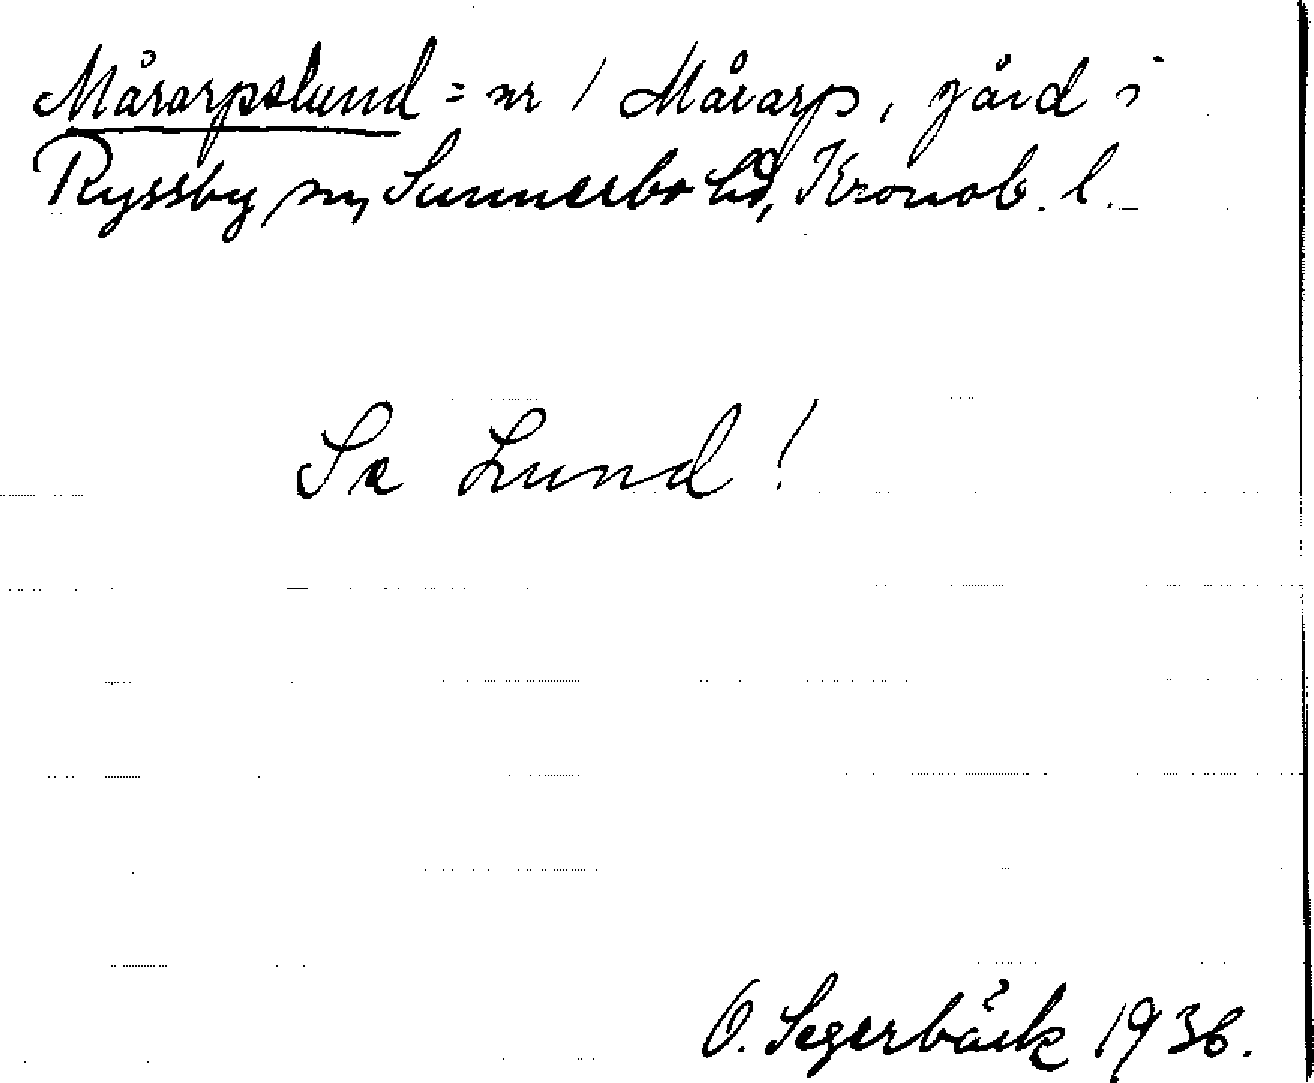 Mårarpslund = nr 1 Mårarp, gård i
Ryssby sn, Sunnerbo hd, Kronob. l.
Se Lund!
O. Segerbäck 1936.